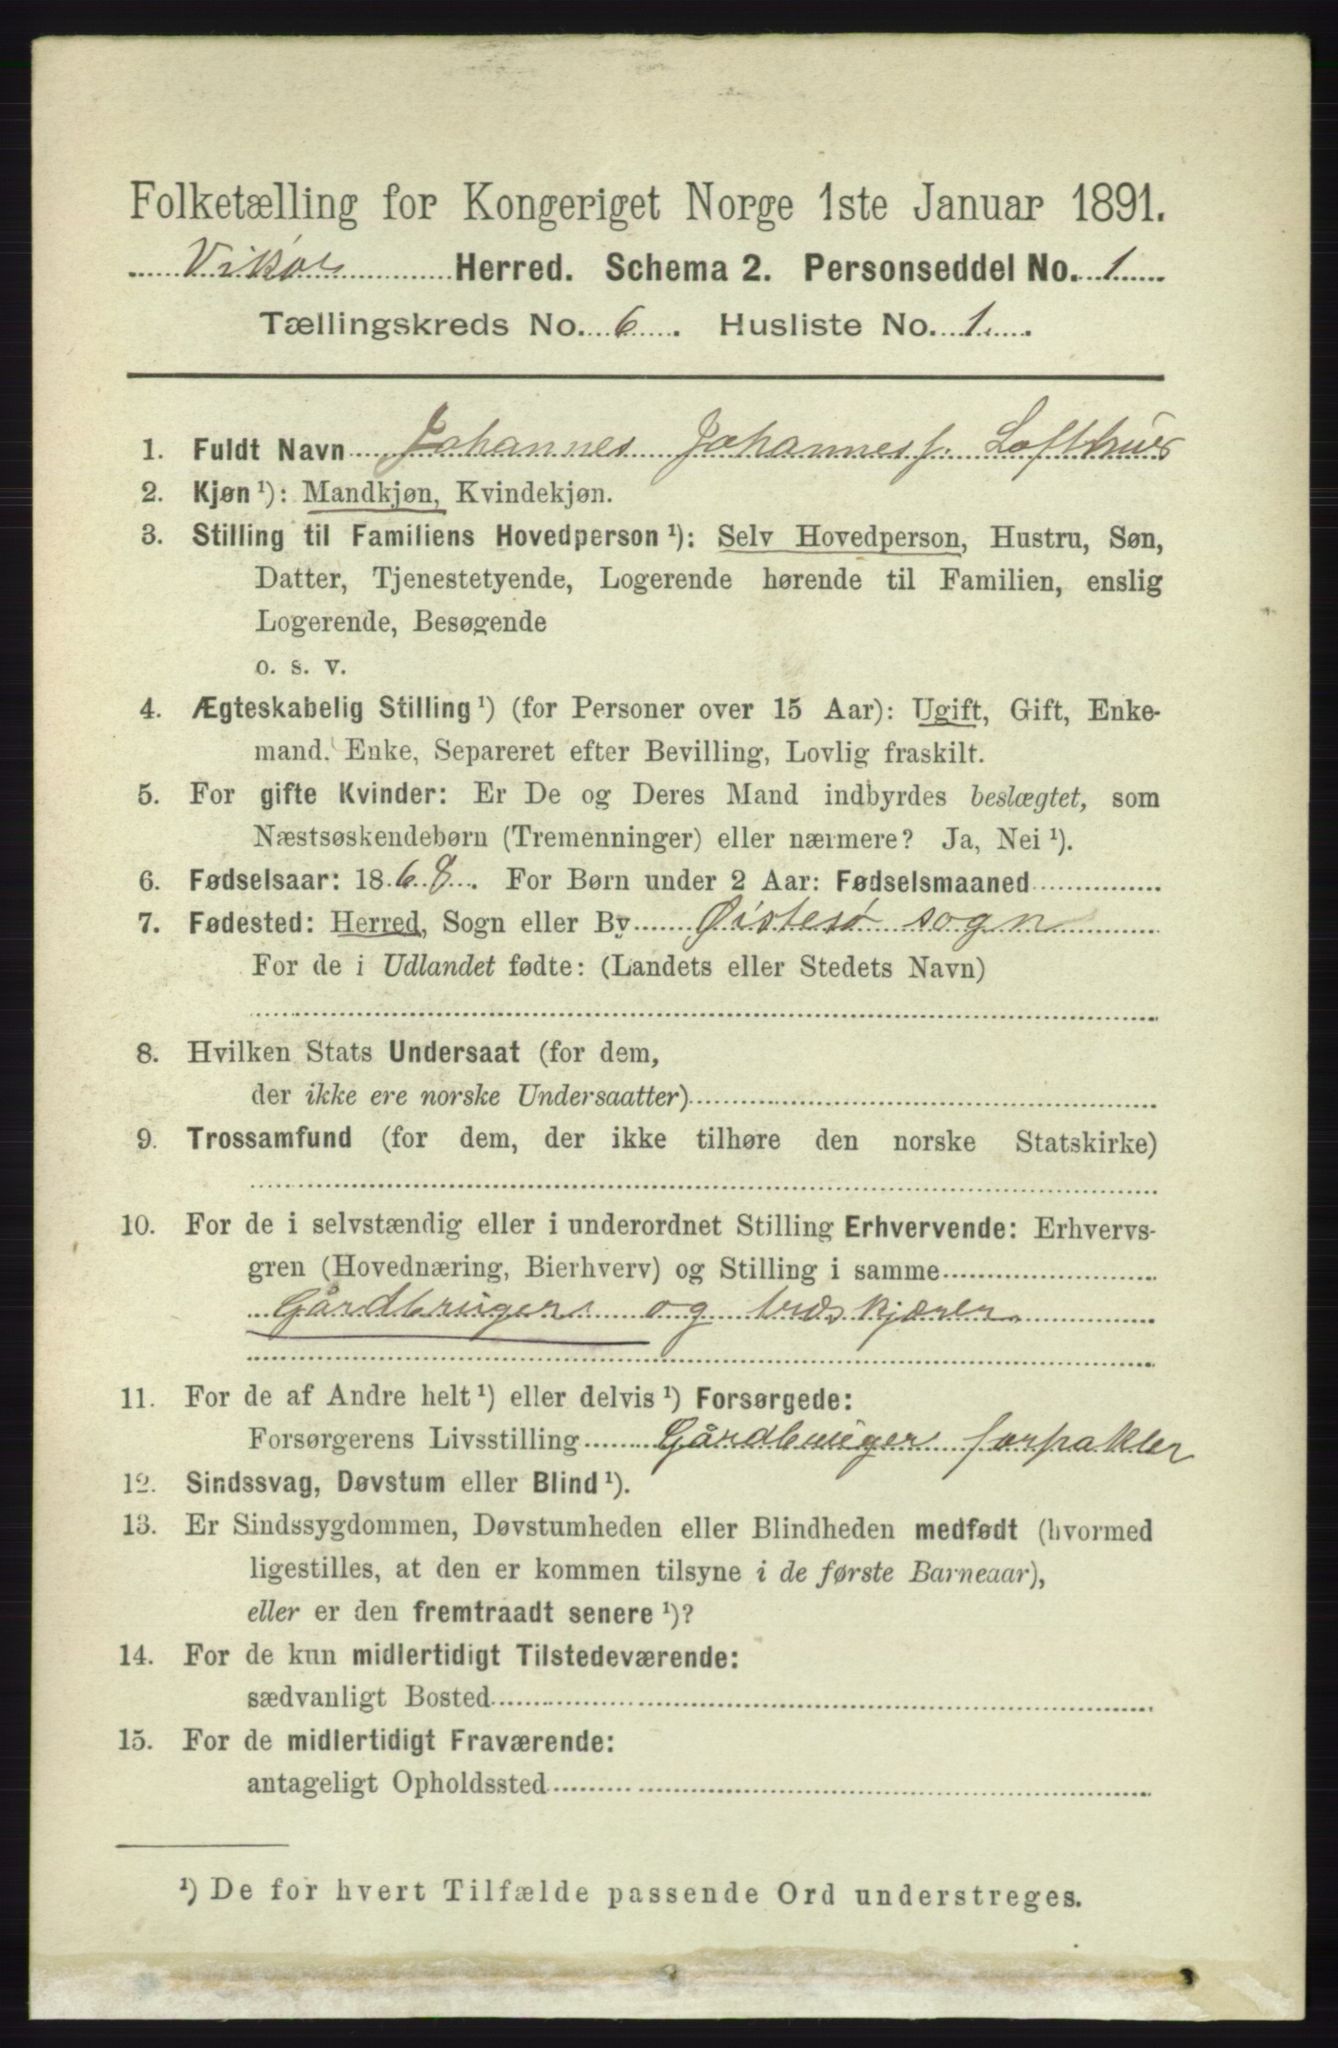 Folketælling for Kongeriget Norge 1ste Januar 1891.
Vikør Herred. Schema 2. Personseddel No. 1
Tællingskreds No. 6. Husliste No. 1.
1. Fuldt Navn Johannes Johannesf. Lofthus
2. Kjøn ¹): Mandkjøn, Kvindekjøn.
3. Stilling til Familiens Hovedperson ¹): Selv Hovedperson, Hustru, Søn,
Datter, Tjenestetyende, Logerende hørende til Familien, enslig
Logerende, Besøgende
o. s. v.
4. Ægteskabelig Stilling ¹) (for Personer over 15 Aar): Ugift, Gift, Enke-
mand. Enke, Separeret efter Bevilling, Lovlig fraskilt.
5. For gifte Kvinder: Er De og Deres Mand indbyrdes beslægtet, som
Næstsøskendebørn (Tremenninger) eller nærmere? Ja, Nei ¹).
6. Fødselsaar: 1868. For Børn under 2 Aar: Fødselsmaaned
7. Fødested: Herred, Sogn eller By Øistesø sogn
For de i Udlandet fødte: (Landets eller Stedets Navn)
8. Hvilken Stats Undersaat (for dem,
der ikke ere norske Undersaatter)
9. Trossamfund (for dem, der ikke tilhøre den norske Statskirke)
10. For de i selvstændig eller i underordnet Stilling Erhvervende: Erhvervs-
gren (Hovednæring, Bierhverv) og Stilling i samme
Gårdbruger og træskjærer
11. For de af Andre helt ¹) eller delvis ¹) Forsørgede:
Forsørgerens Livsstilling Gårdbruger forpakter
12. Sindssvag, Døvstum eller Blind ¹).
13. Er Sindssygdommen, Døvstumheden eller Blindheden medfødt (hvormed
ligestilles, at den er kommen tilsyne i de første Barneaar),
eller er den fremtraadt senere ¹)?
14. For de kun midlertidigt Tilstedeværende:
sædvanligt Bosted
15. For de midlertidigt Fraværende:
antageligt Opholdssted
¹) De for hvert Tilfælde passende Ord understreges.